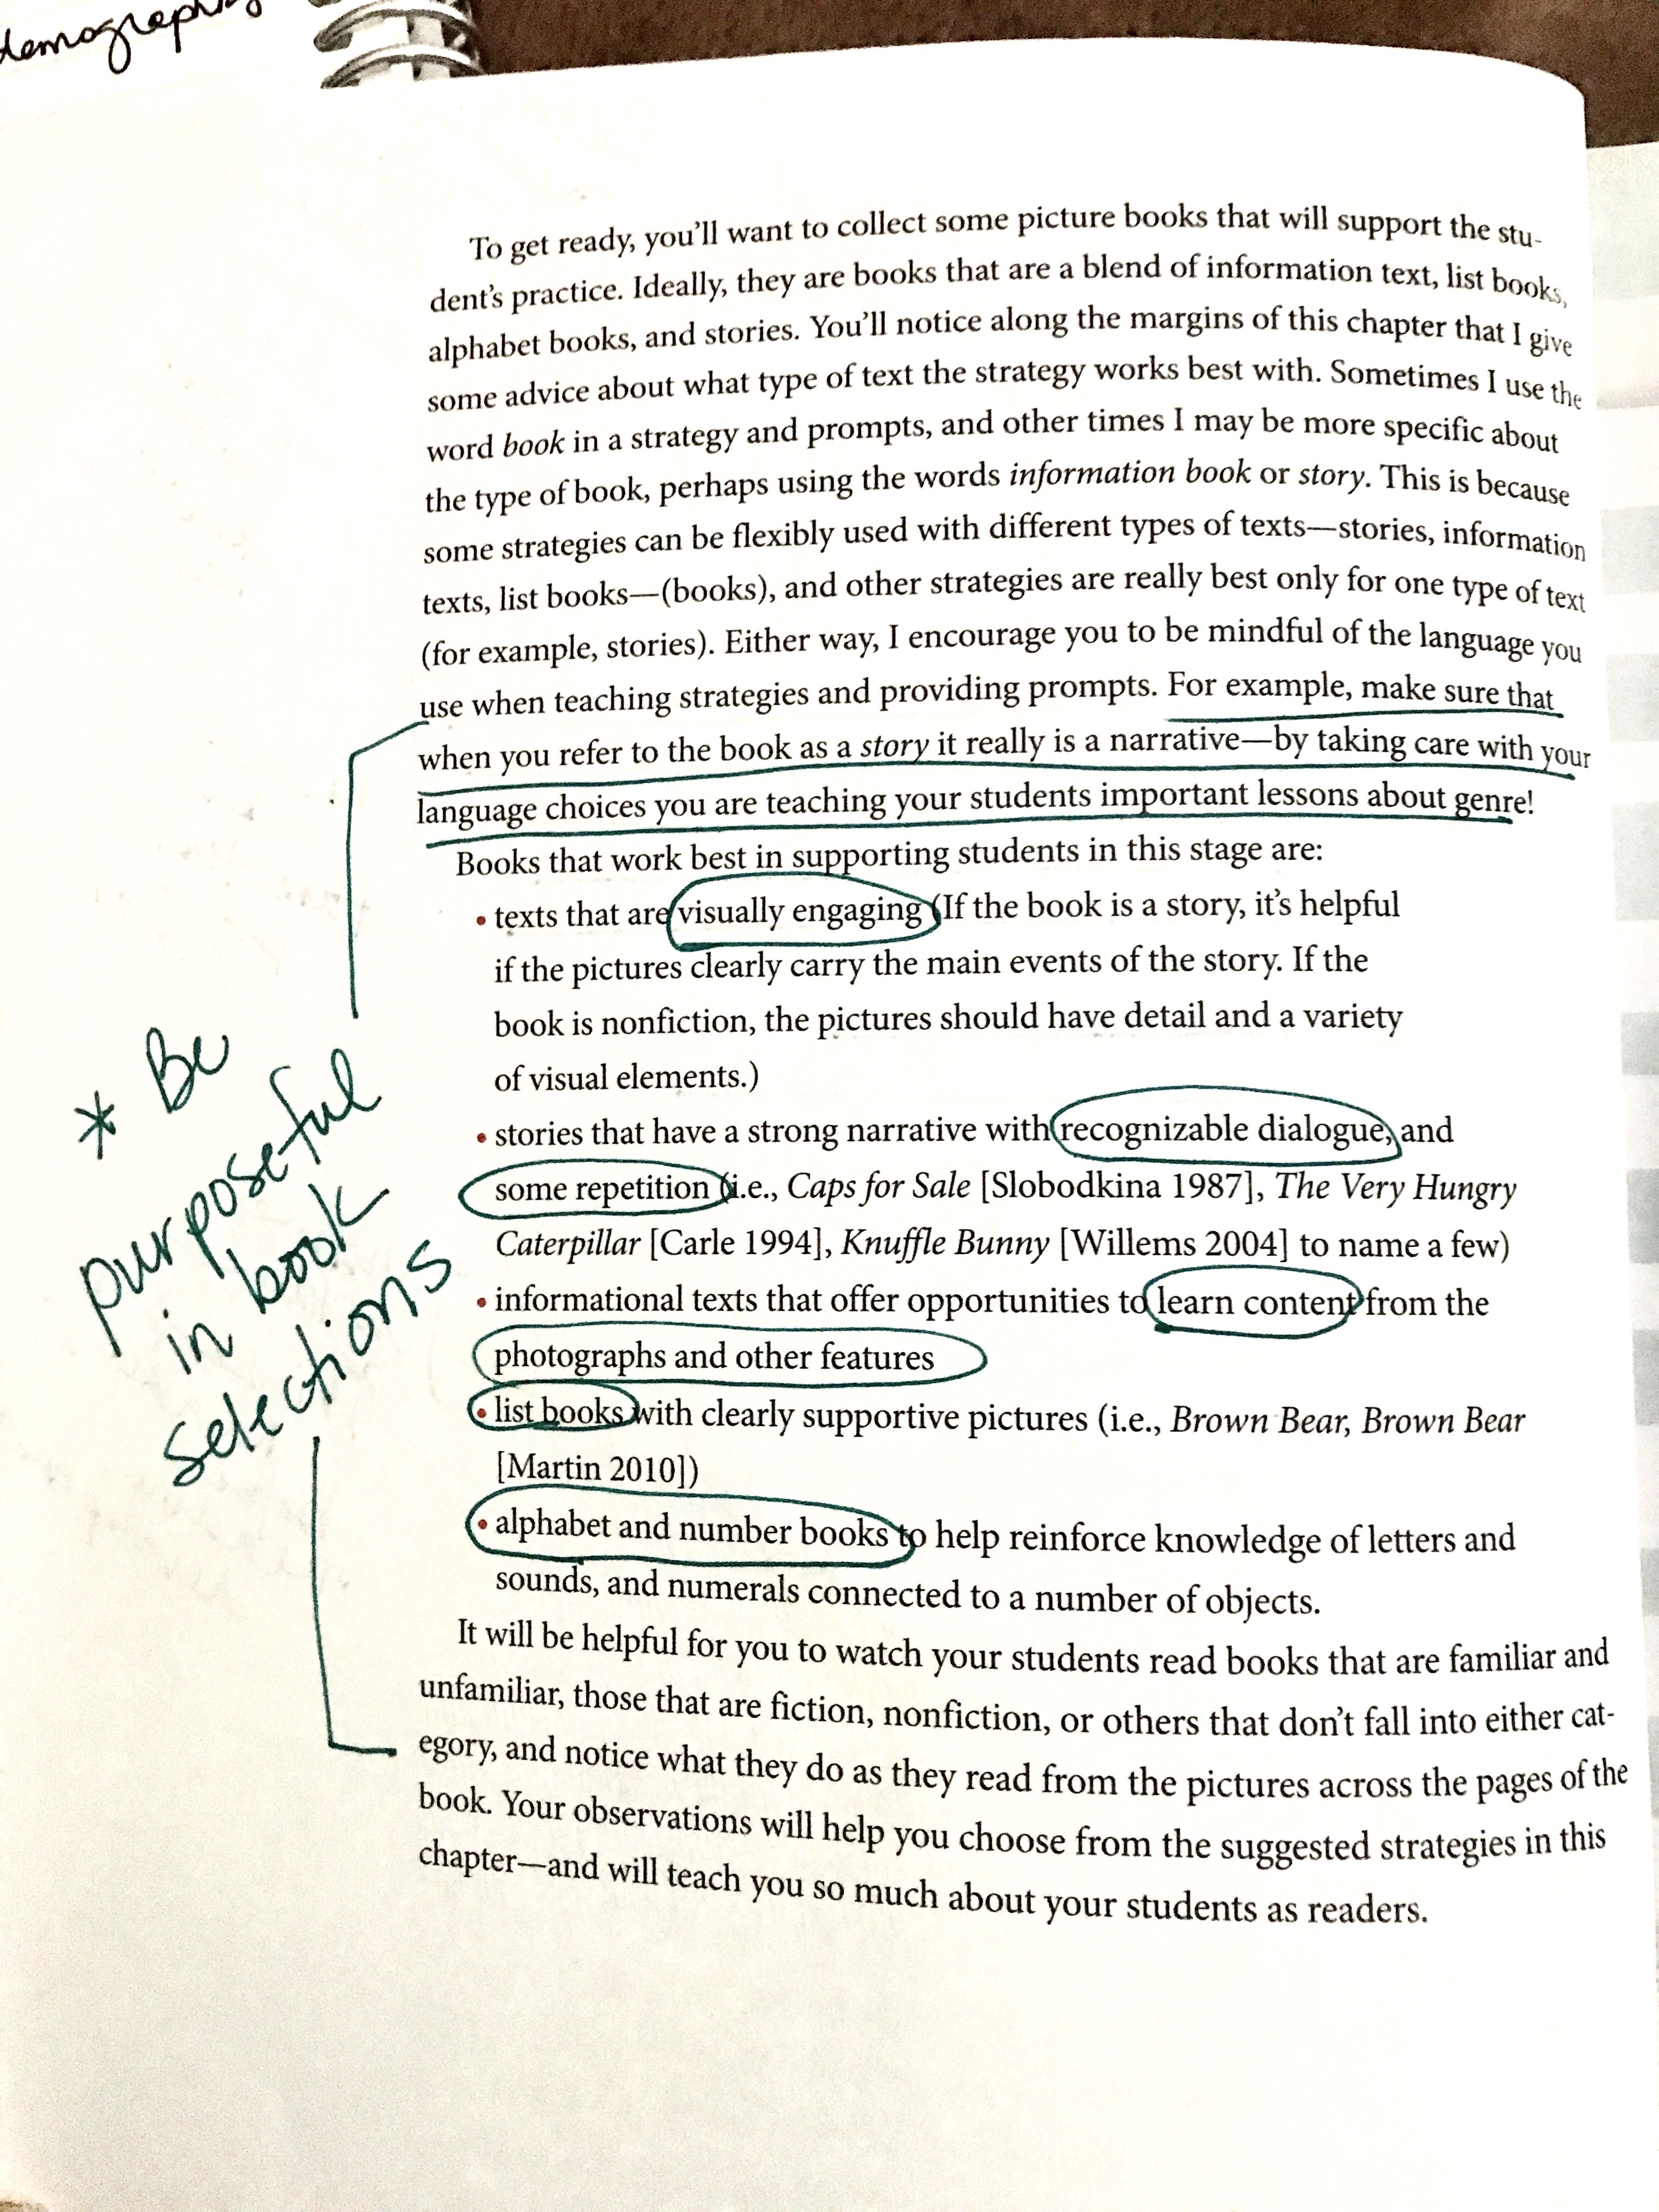 demographi
To get ready, you'll want to collect some picture books that will support the stu-
dent's practice. Ideally, they are books that are a blend of information text, list books,
alphabet books, and stories. You'll notice along the margins of this chapter that I give
some advice about what type of text the strategy works best with. Sometimes I use the
word book in a strategy and prompts, and other times I may be more specific about
the type of book, perhaps using the words information book or story. This is because
some strategies can be flexibly used with different types of texts—stories, information
texts, list books—(books), and other strategies are really best only for one type of text
(for example, stories). Either way, I encourage you to be mindful of the language you
use when teaching strategies and providing prompts. For example, make sure that
when you refer to the book as a story it really is a narrative—by taking care with your
language choices you are teaching your students important lessons about genre!
Books that work best in supporting students in this stage are:
• texts that are visually engaging (If the book is a story, it's helpful
if the pictures clearly carry the main events of the story. If the
book is nonfiction, the pictures should have detail and a variety
of visual elements.)
• stories that have a strong narrative with recognizable dialogue, and
some repetition (i.e., Caps for Sale [Slobodkina 1987], The Very Hungry
Caterpillar [Carle 1994], Knuffle Bunny [Willems 2004] to name a few)
• informational texts that offer opportunities to learn content from the
photographs and other features
• list books with clearly supportive pictures (i.e., Brown Bear, Brown Bear
[Martin 2010])
• alphabet and number books to help reinforce knowledge of letters and
sounds, and numerals connected to a number of objects.
It will be helpful for you to watch your students read books that are familiar and
unfamiliar, those that are fiction, nonfiction, or others that don't fall into either cat-
egory, and notice what they do as they read from the pictures across the pages of the
book. Your observations will help you choose from the suggested strategies in this
chapter—and will teach you so much about your students as readers.
* Be
purposeful
in book
selections